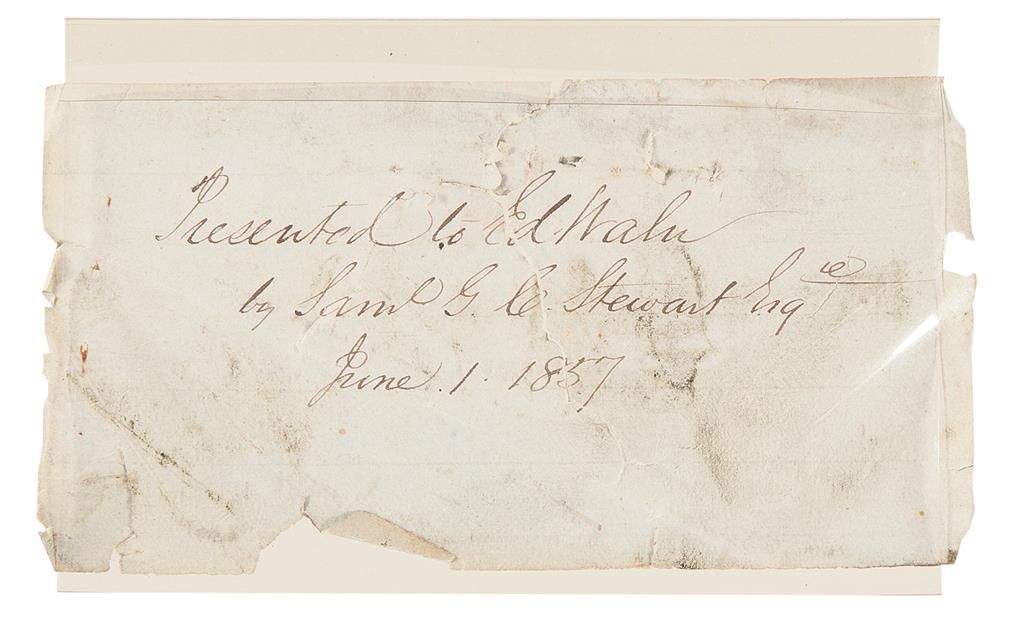 Presented to Ed Waln
by Saml G. C. Stewart Esqre
June. 1. 1857